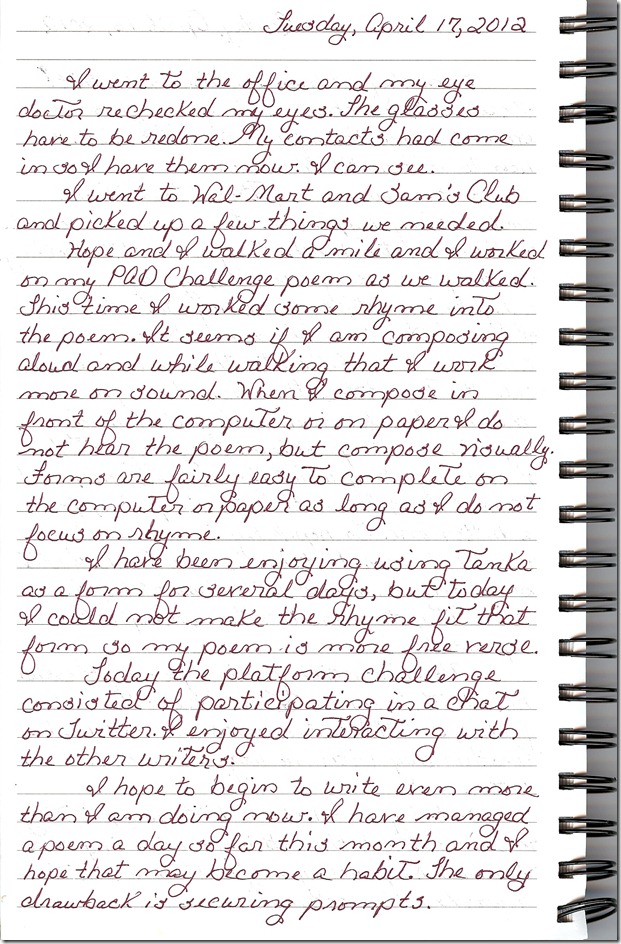 Tuesday, April 17, 2012
I went to the office and my eye
doctor rechecked my eyes. The glasses
have to be redone. My contacts had come
in so I have them now. I can see.
I went to Wal-Mart and Sam's Club
and picked up a few things we needed.
Hope and I walked a mile and I worked
on my PAD Challenge poem as we walked.
This time I worked some rhyme into
the poem. It seems if I am composing
aloud and while walking that I work
more on sound. When I compose in
front of the computer or on paper I do
not hear the poem, but compose visually.
Forms are fairly easy to complete on
the computer or paper as long as I do not
focus on rhyme.
I have been enjoying using Tanka
as a form for several days, but today
I could not make the rhyme fit that
form so my poem is more free verse.
Today the platform challenge
consisted of participating in a chat
on Twitter. I enjoyed interacting with
the other writers.
I hope to begin to write even more
than I am doing now. I have managed
a poem a day so far this month and I
hope that may become a habit. The only
drawback is securing prompts.